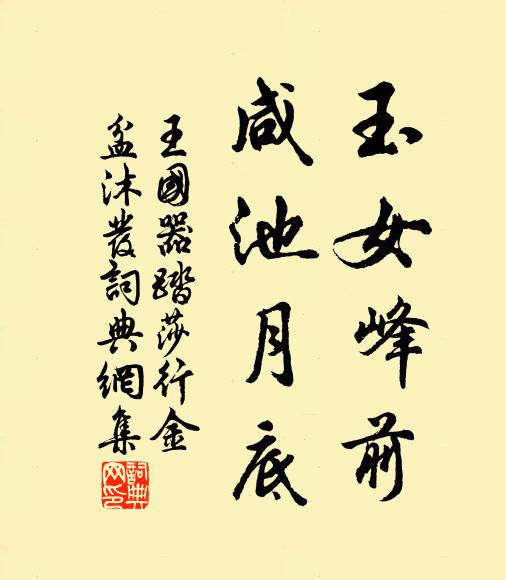 玉女峰前
咸池月底
王國器踏莎行金
盆沐發詞典網集
詞典網印